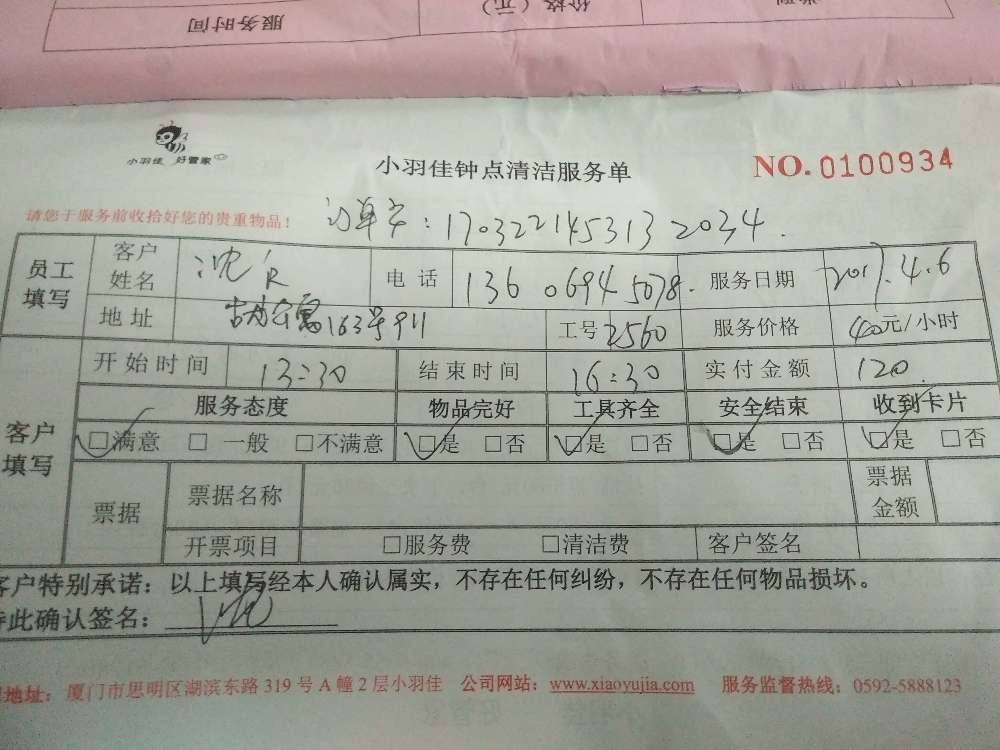 服务时间 价格（元）
小羽佳 好管家
小羽佳钟点清洁服务单 NO.0100934
请您于服务前收拾好您的贵重物品！
订单号：1703221453132034.
员工填写 客户姓名 沈 电话 136 0694 5078. 服务日期 2017.4.6
地址 公寓163号 工号 2560 服务价格 40元/小时
客户填写 开始时间 13:30 结束时间 16:30 实付金额 120
服务态度 物品完好 工具齐全 安全结束 收到卡片
□满意 □一般 □不满意 □是 □否 □是 □否 □是 □否 □是 □否
票据 票据名称 票据金额
开票项目 □服务费 □清洁费 客户签名
客户特别承诺：以上填写经本人确认属实，不存在任何纠纷，不存在任何物品损坏。
特此确认签名：
地址：厦门市思明区湖滨东路319号A幢2层小羽佳 公司网站：www.xiaoyujia.com 服务监督热线：0592-5888123